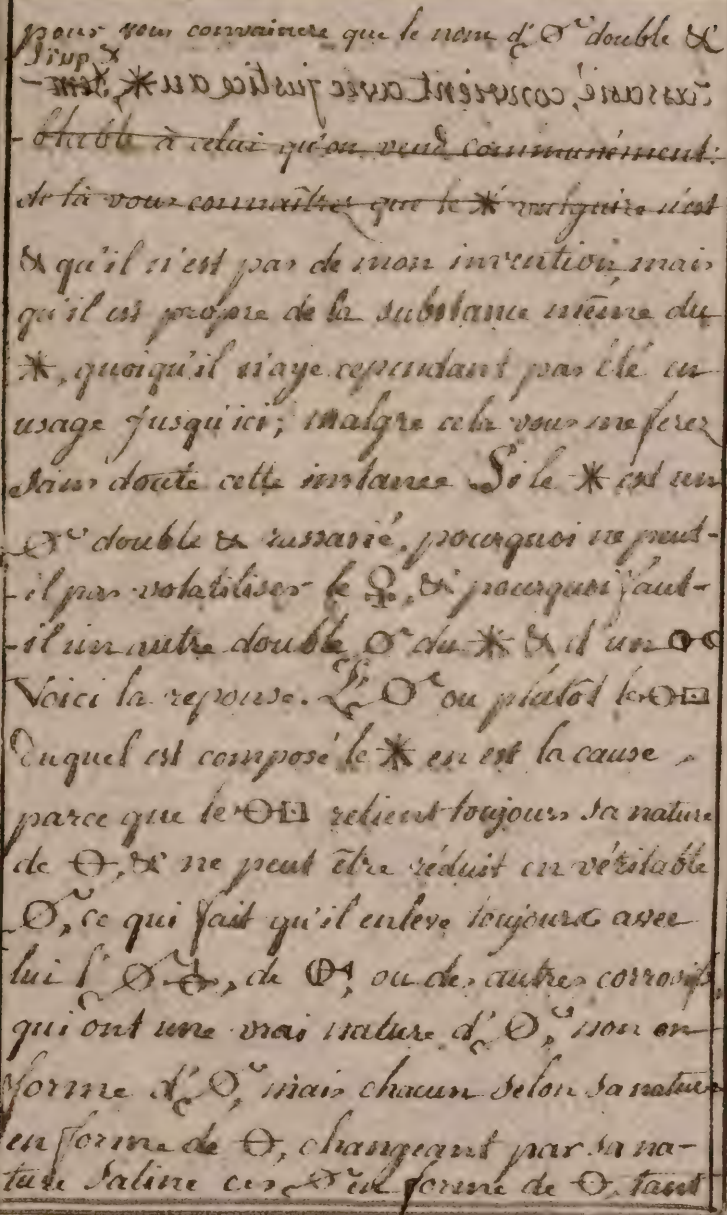 pour vous convaincre que le nom d'🜔 double &
simp &
rassasié, convient avec justice au ✶, sem-
-blable à celui qu'on vend communément:
de là vous connaîtrez que le ✶ vulgaire n'est
& qu'il n'est pas de mon invention mais
qu'il est propre de la substance même du
✶, quoiqu'il n'aye cependant pas été en
usage jusqu'ici; malgre cela vous me ferez
sans doute cette instance Si le ✶ est un
double & rassasié, pourquoi ne peut-
-il pas volatiliser le ♀, & pourquoi faut-
-il un autre double du ✶ & d'un
Voici la reponse. L' ou plutôt le 🜔□
Duquel est composé le ✶ en est la cause,
parce que le 🜔□ retient toujours sa nature
de 🜔, & ne peut être réduit en véritable
ce qui fait qu'il enleve toujours avec
lui l' de ou des autres corrosifs,
qui ont une vrai nature d' non en
forme d' mais chacun selon sa nature
en forme de 🜔, changeant par sa na-
ture saline ces en forme de 🜔, tant